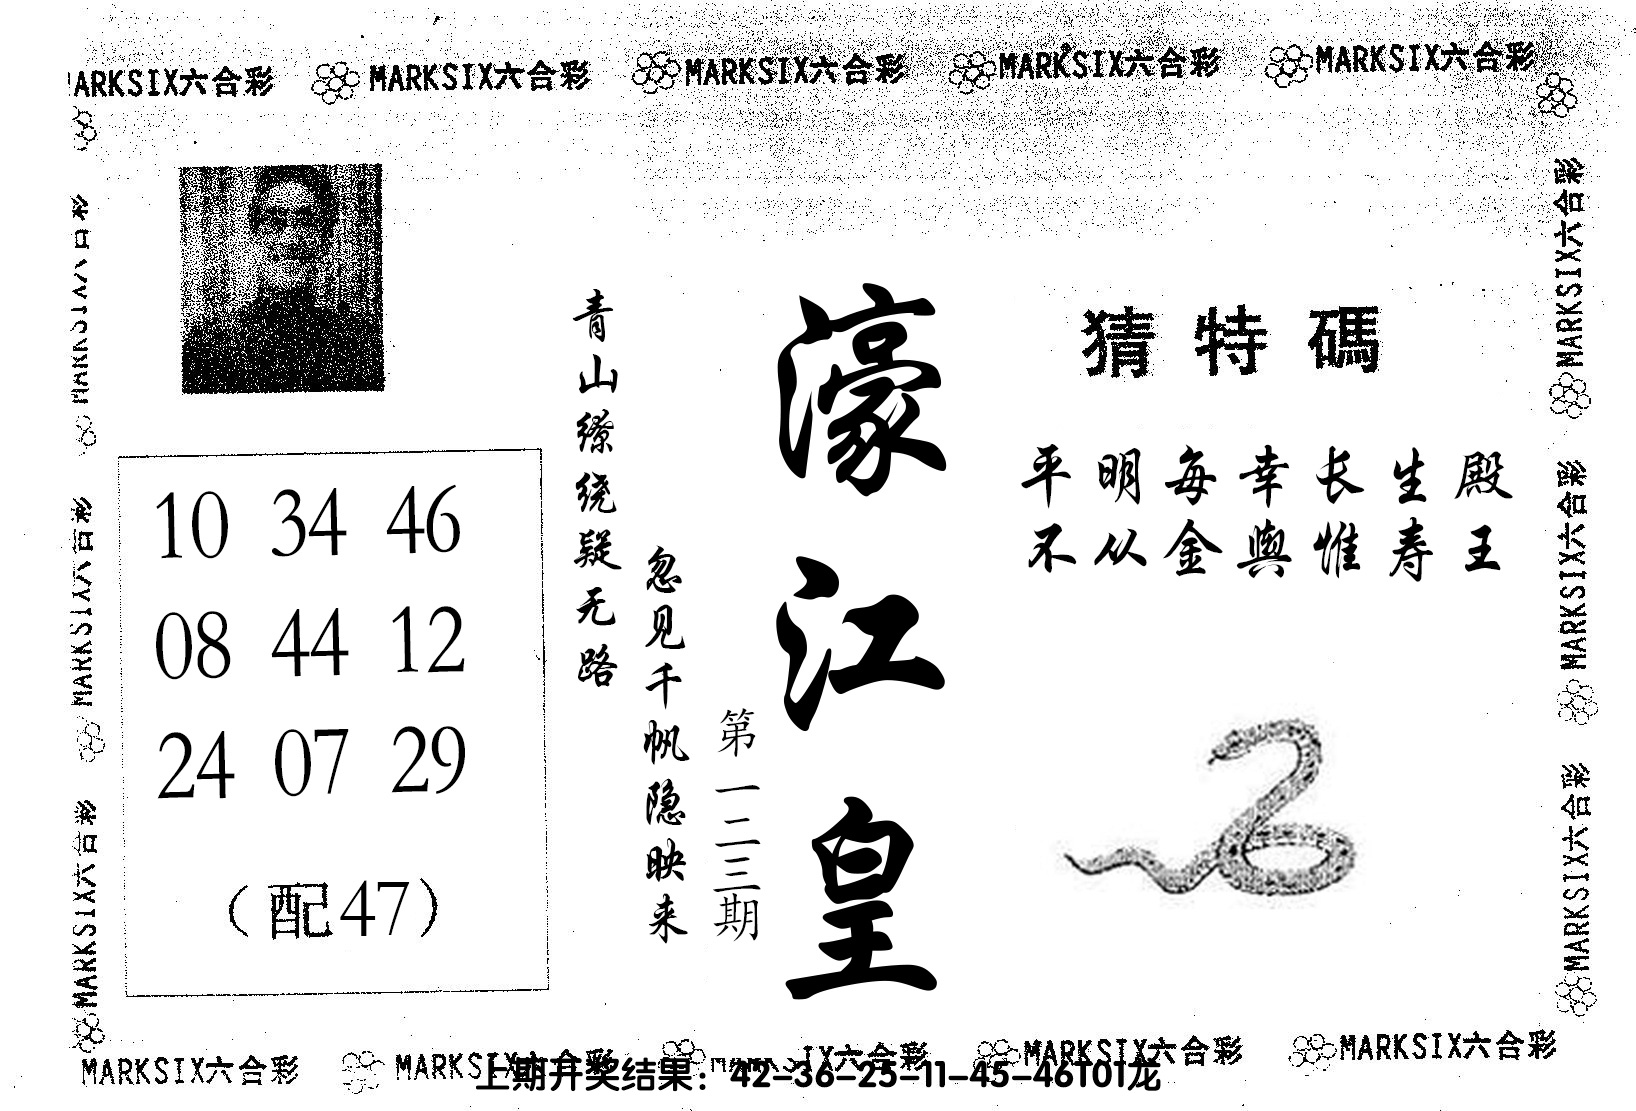 MARKSIX六合彩 MARKSIX六合彩 MARKSIX六合彩 MARKSIX六合彩
猜特碼
平明每幸长生殿
不从金舆惟寿王
濠江皇
第一二三期
青山缭绕疑无路
忽见千帆隐映来
10 34 46
08 44 12
24 07 29
（配47）
MARKSIX六合彩
MARKSIX六合彩
MARKSIX六合彩
MARKSIX六合彩
MARKSIX六合彩
MARKSIX六合彩 MARKSIX六合彩 MARKSIX六合彩 MARKSIX六合彩
上期开奖结果：42-36-25-11-45-46T01龙